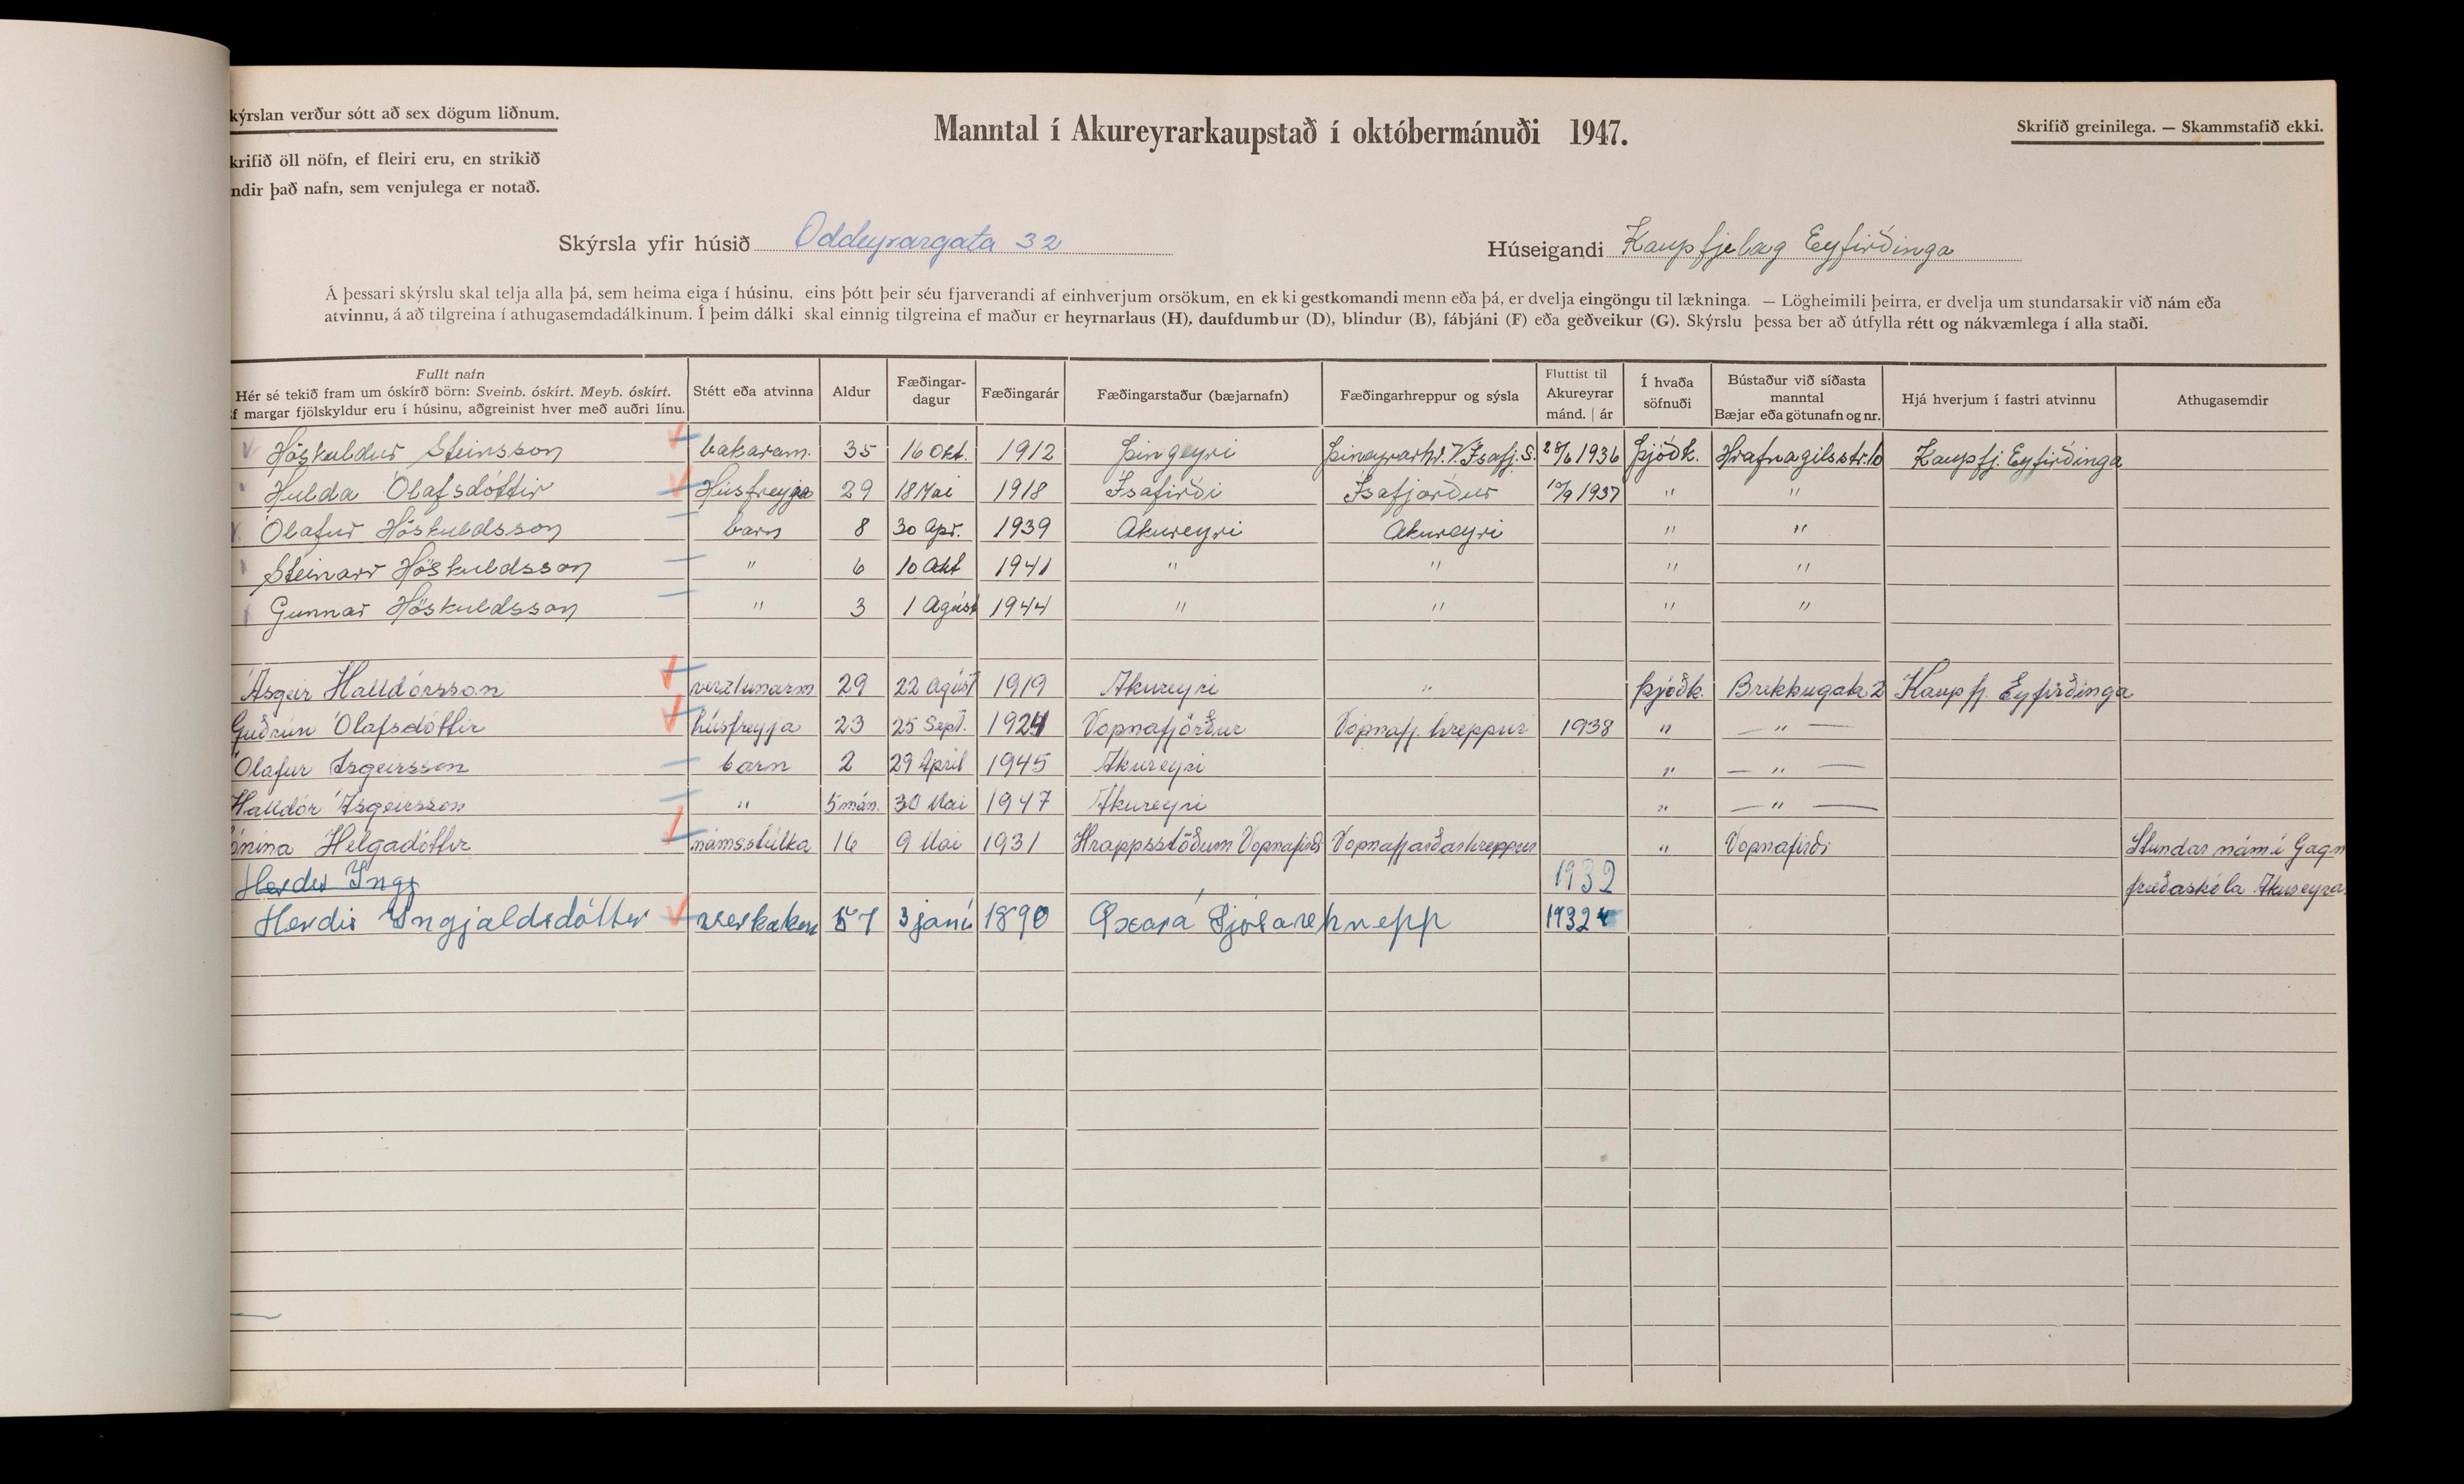 kýrslan verður sótt að sex dögum liðnum.
krifið öll nöfn, ef fleiri eru, en strikið
ndir það nafn, sem venjulega er notað.
Manntal í Akureyrarkaupstað í októbermánuði 1947.
Skrifið greinilega. — Skammstafið ekki.
Skýrsla yfir húsið Oddeyrargata 32
Húseigandi Kaupfjelag Eyfirðinga
Á þessari skýrslu skal telja alla þá, sem heima eiga í húsinu, eins þótt þeir séu fjarverandi af einhverjum orsökum, en ekki gestkomandi menn eða þá, er dvelja eingöngu til lækninga. — Lögheimili þeirra, er dvelja um stundarsakir við nám eða
atvinnu, á að tilgreina í athugasemdadálkinum. Í þeim dálki skal einnig tilgreina ef maður er heyrnarlaus (H), daufdumbur (D), blindur (B), fábjáni (F) eða geðveikur (G). Skýrslu þessa ber að útfylla rétt og nákvæmlega í alla staði.
Fullt nafn
Hér sé tekið fram um óskírð börn: Sveinb. óskírt. Meyb. óskírt.
f margar fjölskyldur eru í húsinu, aðgreinist hver með auðri línu.
Stétt eða atvinna
Aldur
Fæðingar-
dagur
Fæðingarár
Fæðingarstaður (bæjarnafn)
Fæðingarhreppur og sýsla
Fluttist til
Akureyrar
mánd. | ár
Í hvaða
söfnuði
Bústaður við síðasta
manntal
Bæjar eða götunafn og nr.
Hjá hverjum í fastri atvinnu
Athugasemdir
Höskuldur Steinsson bakaram. 35 16 Okt. 1912 Þingeyri Þingeyrarhr. V. Ísafj. S. 28/6 1936 Þjóðk. Hrafnagilsstr. 10 Kaupfj. Eyfirðinga
Hulda Ólafsdóttir Húsfreyja 29 18 Mai 1918 Ísafirði Ísafjörður 10/9 1937 " "
Ólafur Höskuldsson barn 8 30 Apr. 1939 Akureyri Akureyri " "
Steinarr Höskuldsson " 6 10 Okt 1941 " " " "
Gunnar Höskuldsson " 3 1 Agúst 1944 " " " "
Ásgeir Halldórsson verzlunarm 29 22 Agúst 1919 Akureyri " Þjóðk. Brekkugata 2 Kaupfj. Eyfirðinga
Guðrún Ólafsdóttir húsfreyja 23 25 Sept. 1924 Vopnafjörður Vopnafj. hreppur 1938 " — " —
Ólafur Ásgeirsson barn 2 29 April 1945 Akureyri " — " —
Halldór Ásgeirsson " 5 mán. 30 Mai 1947 Akureyri " — " —
ónína Helgadóttir námsstúlka 16 9 Mai 1931 Hrappsstöðum Vopnafirði Vopnafjarðarhreppur " Vopnafirði Stundar nám í Gagn
Herdis Ingj 1932 fræðaskóla Akureyra
Herdis Ingjaldsdóttir verkakon 57 3 janí 1890 Öxará Ljósavehrepp 1932